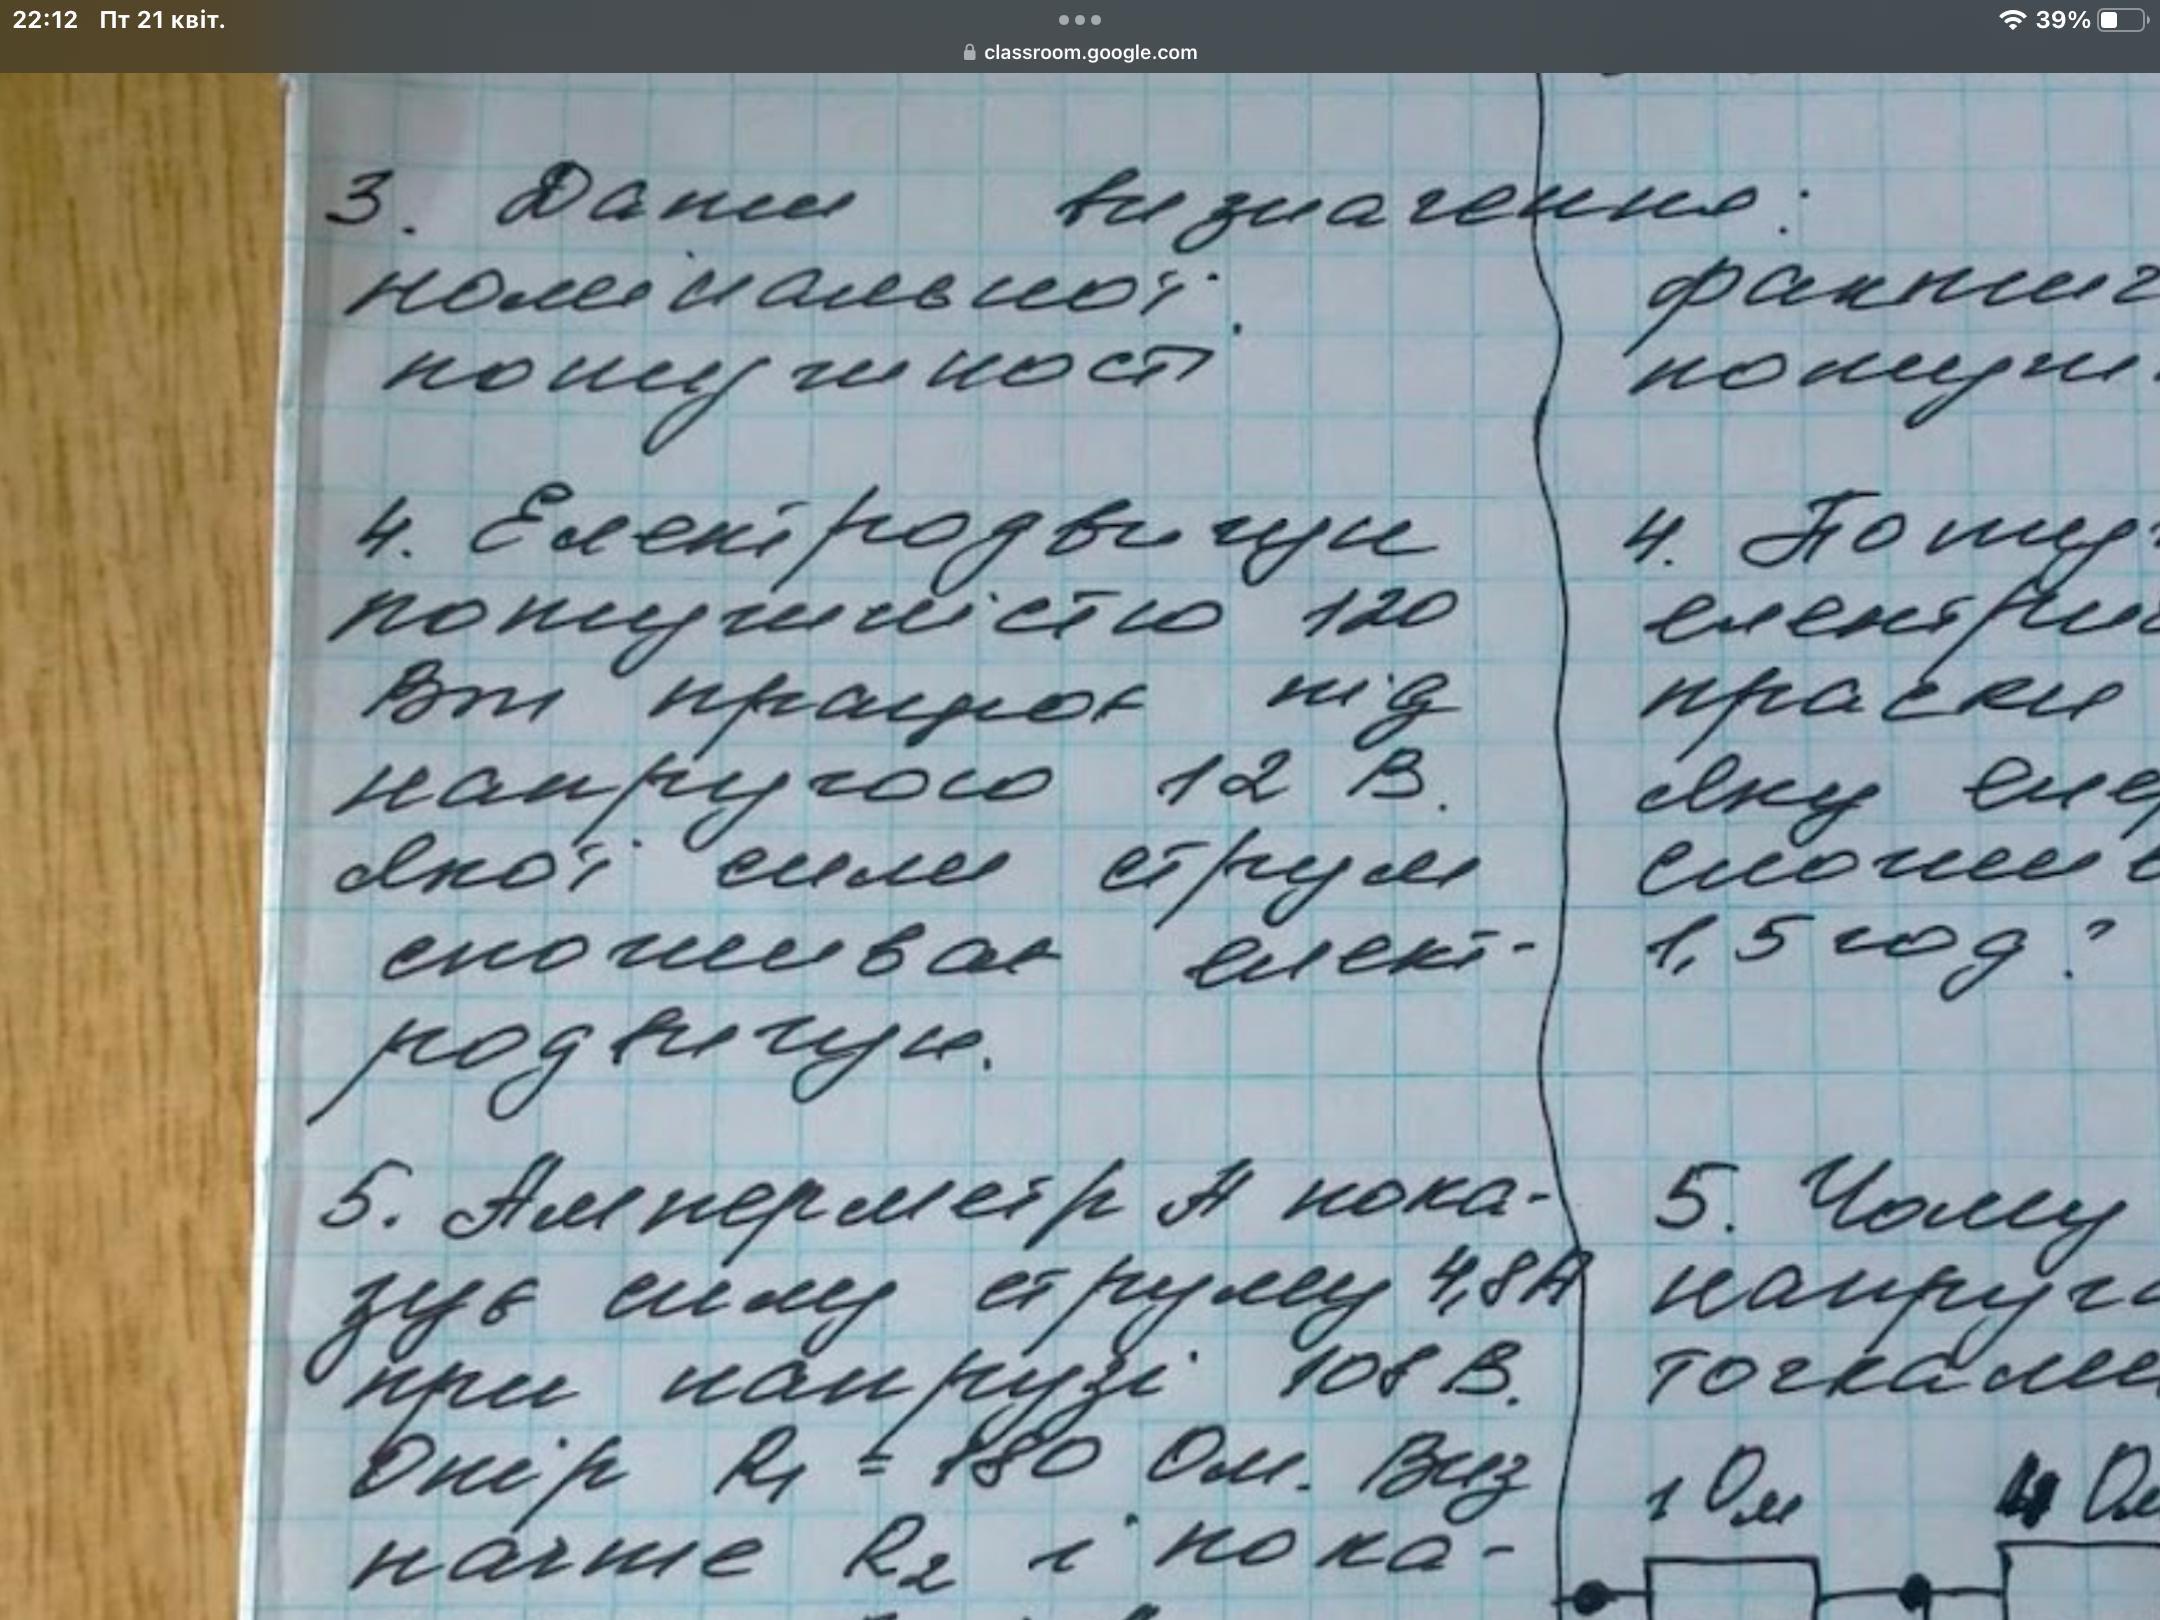 22:12 Пт 21 квіт.
39%
classroom.google.com
3. Дати визначення:
номінальної
потужності
4. Електродвигун
потужністю 120
Вт працює під
напругою 12 В.
Якої сили струм
споживає елект-
родвигун.
5. Амперметр А пока-
зує силу струму 4,8А
при напрузі 108 В.
Опір R1 = 180 Ом. Виз
начте R2 і пока-
4.
праски
Яку
1,5 год?
5. Чому
1 Ом 4 Ом